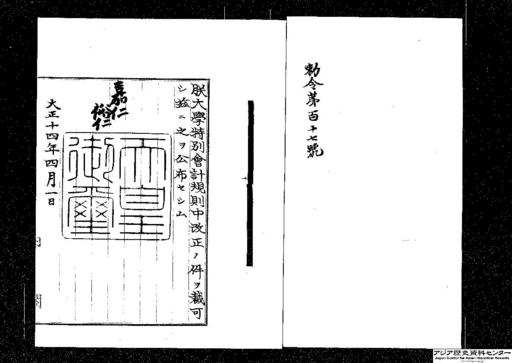 勅令第百十七號
朕大學特別會計規則中改正ノ件ヲ裁可
シ茲ニ之ヲ公布セシム
嘉仁
裕仁
天皇御璽
大正十四年四月一日
アジア歴史資料センター
Japan Center for Asian Historical Records